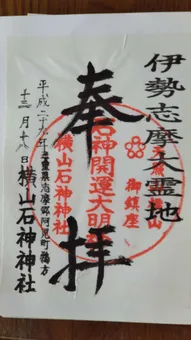 伊勢志摩大霊地
奉拝
横山
御鎮座
石神開運大明神
横山石神神社
三重県志摩郡阿児町鵜方
平成二十九年
十二月十八日
横山石神神社